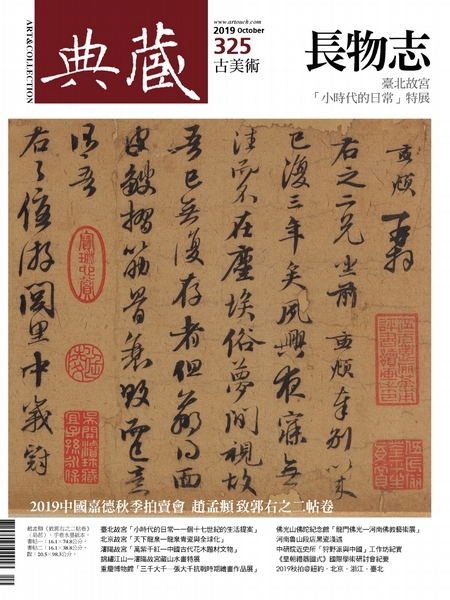 ART&COLLECTION
典藏
www.artouch.com
2019 October
325
古美術
長物志
臺北故宮
「小時代的日常」特展
孟頫再拜
右之二兄坐前孟頫奉別以來
已復三年矣夙興夜寐無
往而不在塵埃俗夢間視故
吾已無復存者但羸得面
皮皺摺筋骨衰敗而已意
謂吾
右之優游閭里中峩冠
2019中國嘉德秋季拍賣會 趙孟頫 致郭右之二帖卷
趙孟頫《致郭右之二帖卷》
（局部），手卷 水墨紙本，
書帖一：16.1×74.8公分，
書帖二：16.1×38.8公分，
跋：20.5×98.3公分。
臺北故宮「小時代的日常——一個十七世紀的生活提案」
北京故宮「天下龍泉—龍泉青瓷與全球化」
瀋陽故宮「萬紫千紅—中國古代花木題材文物」
曉繡江山—瀋陽故宮藏山水畫特展
重慶博物館「三千大千—張大千抗戰時期繪畫作品展」
佛光山佛陀紀念館「龍門佛光—河南佛教藝術展」
河南魯山段店黑瓷淺述
中研院近史所「狩野派與中國」工作坊紀實
《皇朝禮器圖式》國際學術研討會紀要
2019秋拍@紐約．北京．浙江．臺北